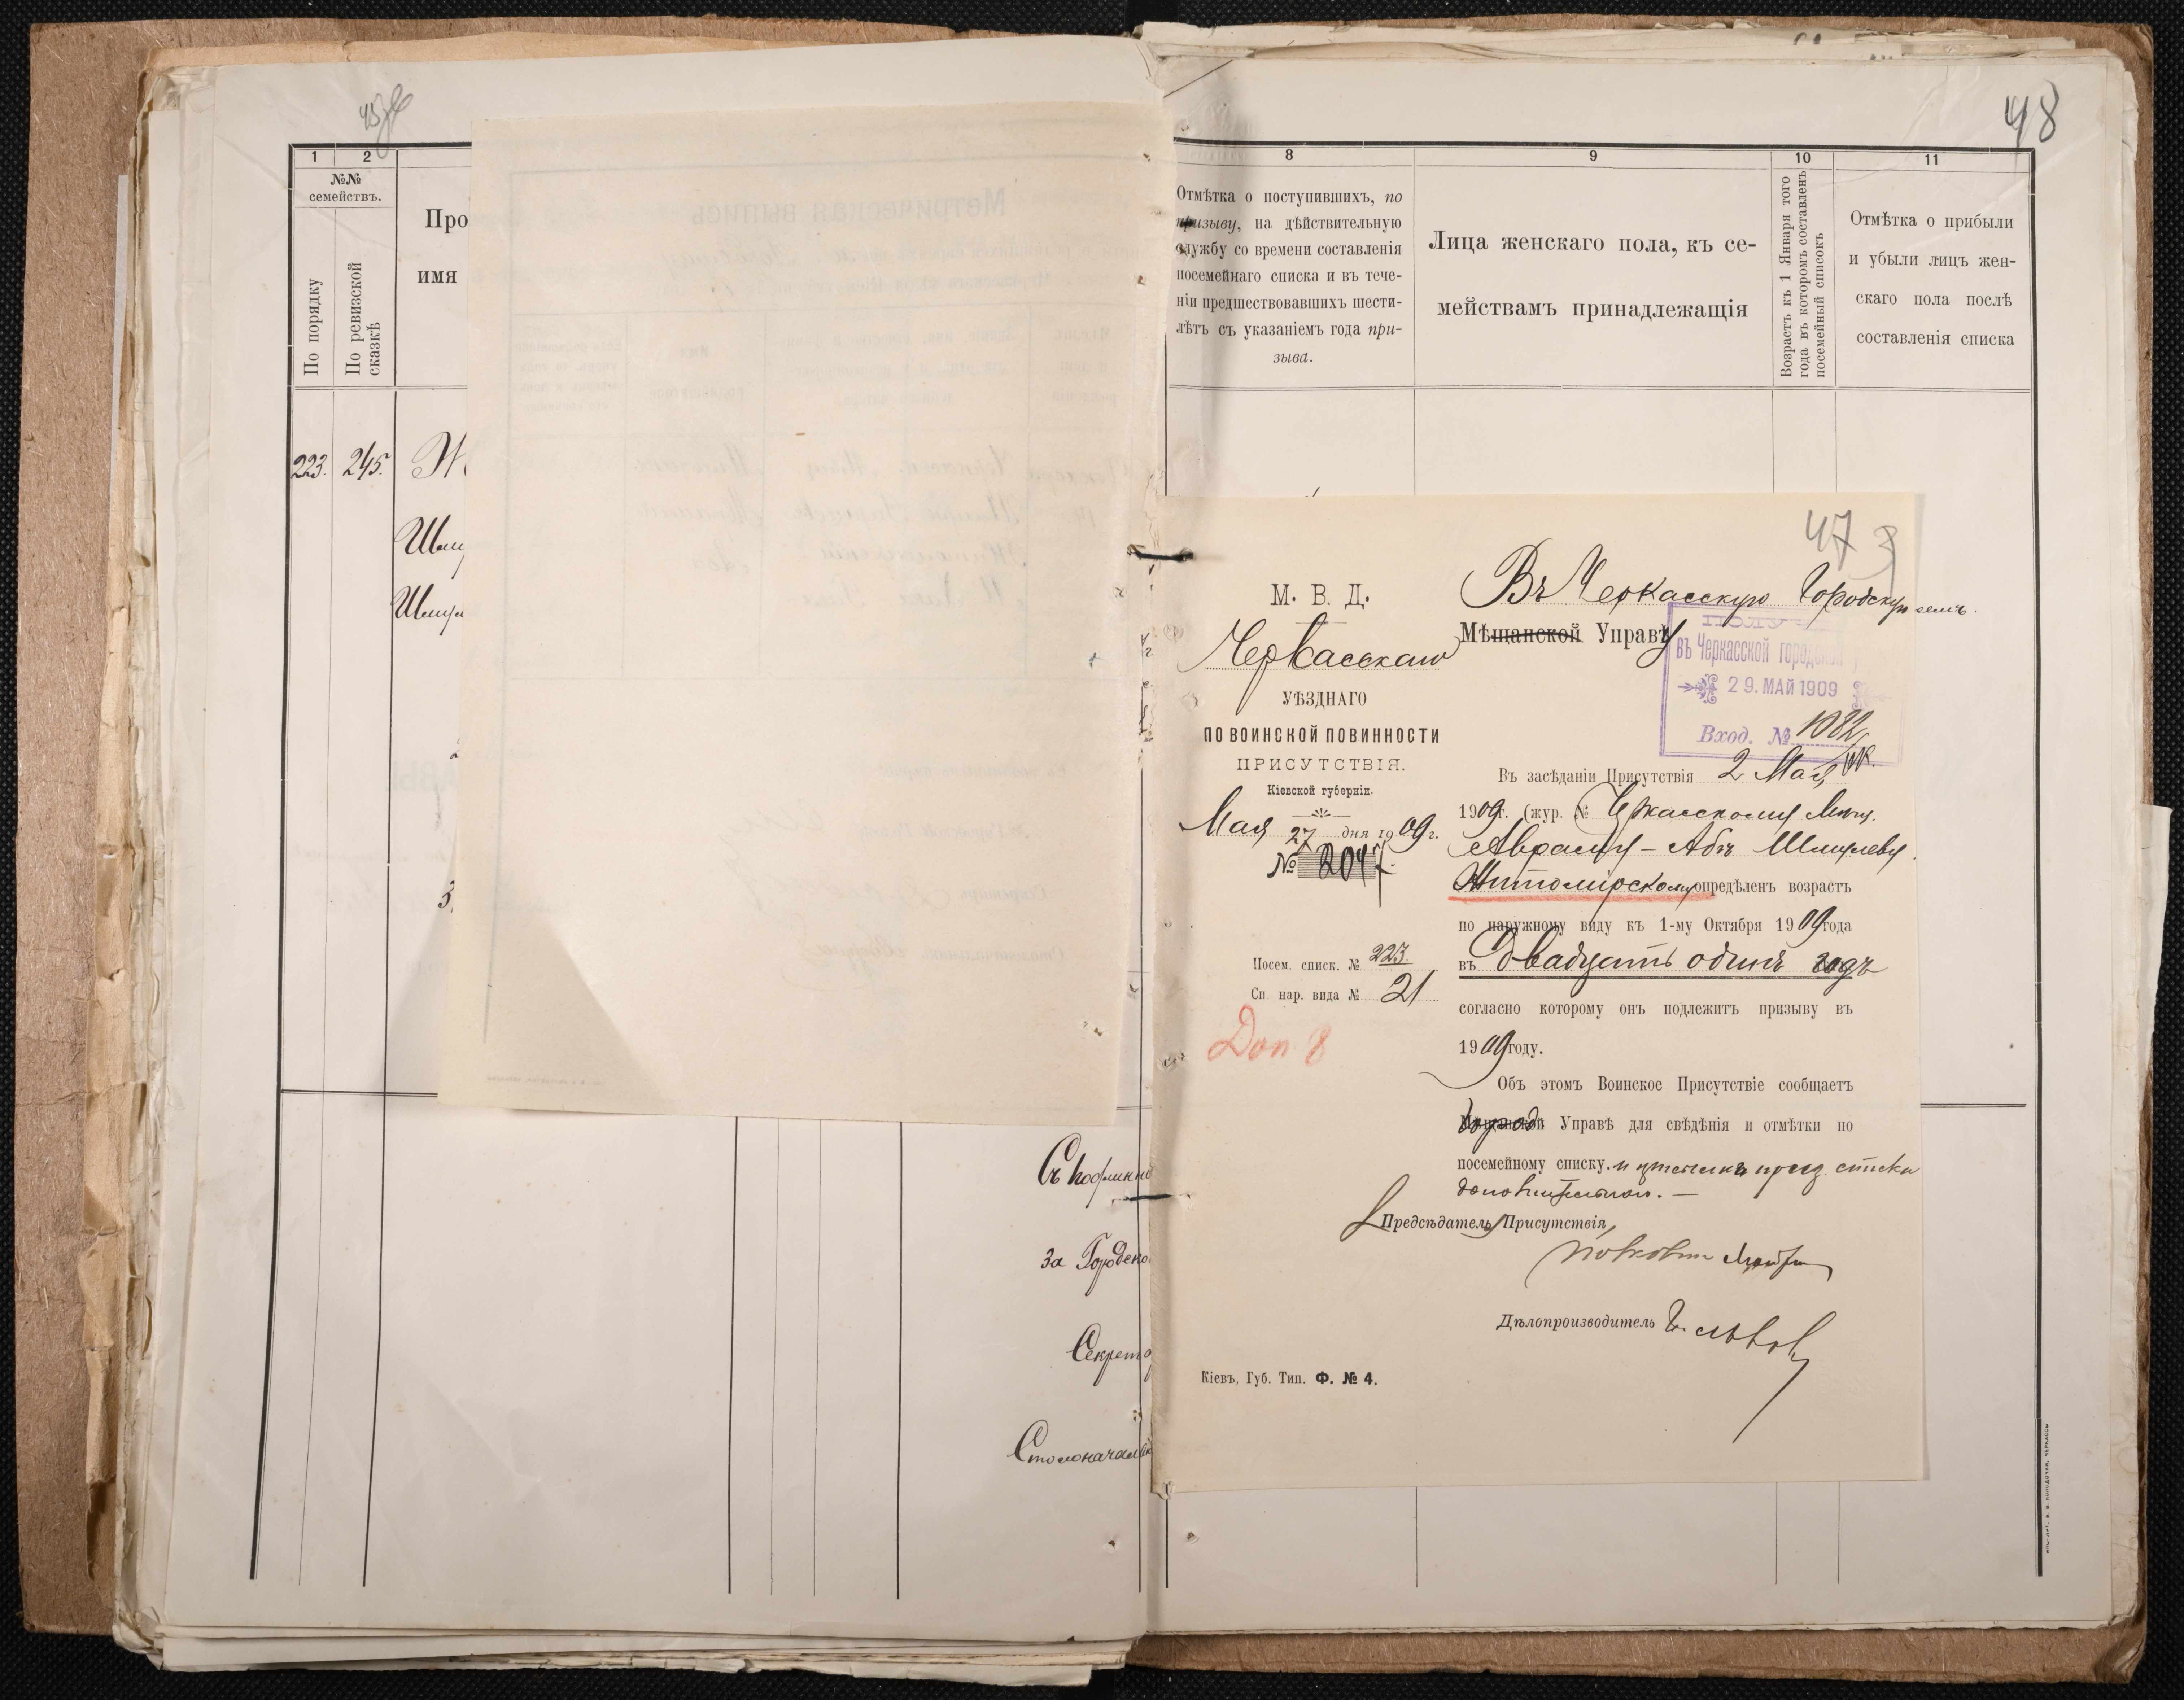 48
1
2
№№
семействъ.
По порядку
По ревизской сказкѣ
Про
имя
223. 245.
Шму
Шмул
3.
Съ подлинно
За Городско
Секрета
Столоначальн
8
9
10
11
Отмѣтка о поступившихъ, по
призыву, на дѣйствительную
службу со времени составленія
посемейнаго списка и въ тече-
ніи предшествовавшихъ шести-
лѣтъ съ указаніемъ года при-
зыва.
Лица женскаго пола, къ се-
мействамъ принадлежащія
Возрастъ къ 1 Января того
года въ которомъ составленъ
посемейный списокъ
Отмѣтка о прибыли
и убыли лицъ жен-
скаго пола послѣ
составленія списка
47
М. В. Д.
Черкасскаго
УѢЗДНАГО
ПО ВОИНСКОЙ ПОВИННОСТИ
ПРИСУТСТВІЯ.
Кіевской губерніи.
Мая 27 дня 1909 г.
№ 2047
Посем. списк. № 223.
Сп. нар. вида № 21
Доп 8
Въ Черкасскую Городскую
Мѣщанской Управу
въ Черкасской городской
29. МАЙ 1909
Вход. № 1082
Въ засѣданіи Присутствія 2 Мая
1909 г. (жур. № Черкасскому Мѣщ.
Аврому-Абъ Шмулеву
Житомірскому опредѣленъ возрастъ
по наружному виду къ 1-му Октября 1909 года
въ двадцать одинъ годъ
согласно которому онъ подлежитъ призыву въ
1909 году.
Объ этомъ Воинское Присутствіе сообщаетъ
Управѣ для свѣдѣнія и отмѣтки по
посемейному списку. и списка
Предсѣдатель Присутствія,
Дѣлопроизводитель
Кіевъ, Губ. Тип. Ф. № 4.